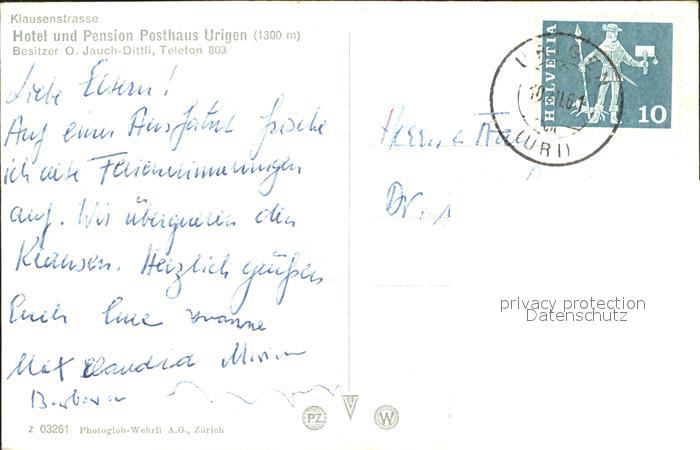 Klausenstrasse
Hotel und Pension Posthaus Urigen (1300 m)
Besitzer O. Jauch-Dittli, Telefon 803
Liebe Eltern!
Auf einer Ausfahrt frische
ich alte Ferienerinnerungen
auf. Wir überqueren den
Klausen. Herzlich grüßen
Euch Eure Yvonne
Max Claudia
Barbara
z 03261 Photoglob-Wehrli A.G., Zürich
PZ
W
HELVETIA
10
URIGEN
(URI)
Herrn
Dr.
privacy protection
Datenschutz